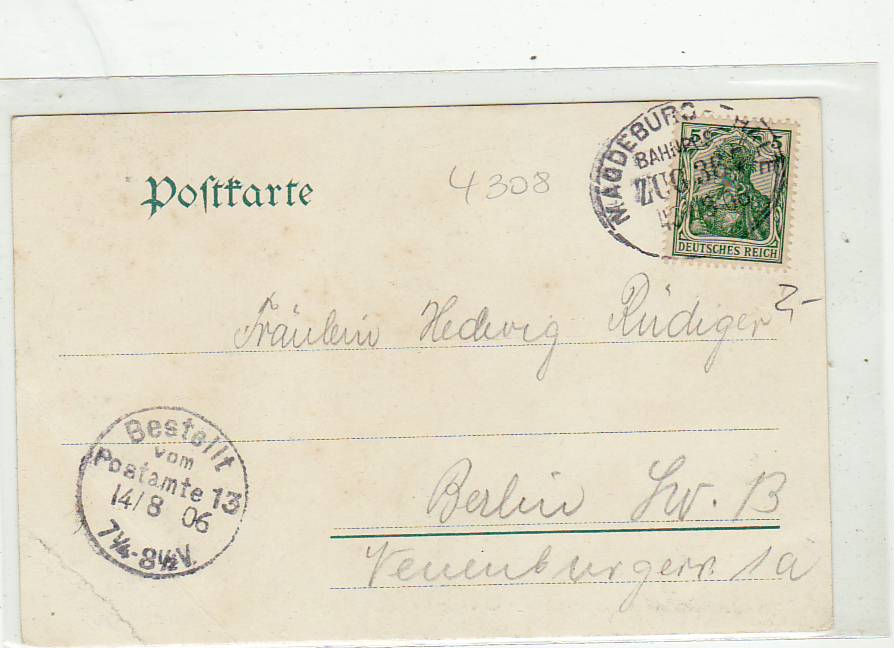 Postkarte
4308
MAGDEBURG
BAHNPOST
ZUG
5 5
DEUTSCHES REICH
2,-
Fräulein Hedwig Rüdiger
Bestellt
vom
Postamte 13
14/8 06
7¼-8½V.
Berlin Sw. 13
Neuenburgerr. 1a